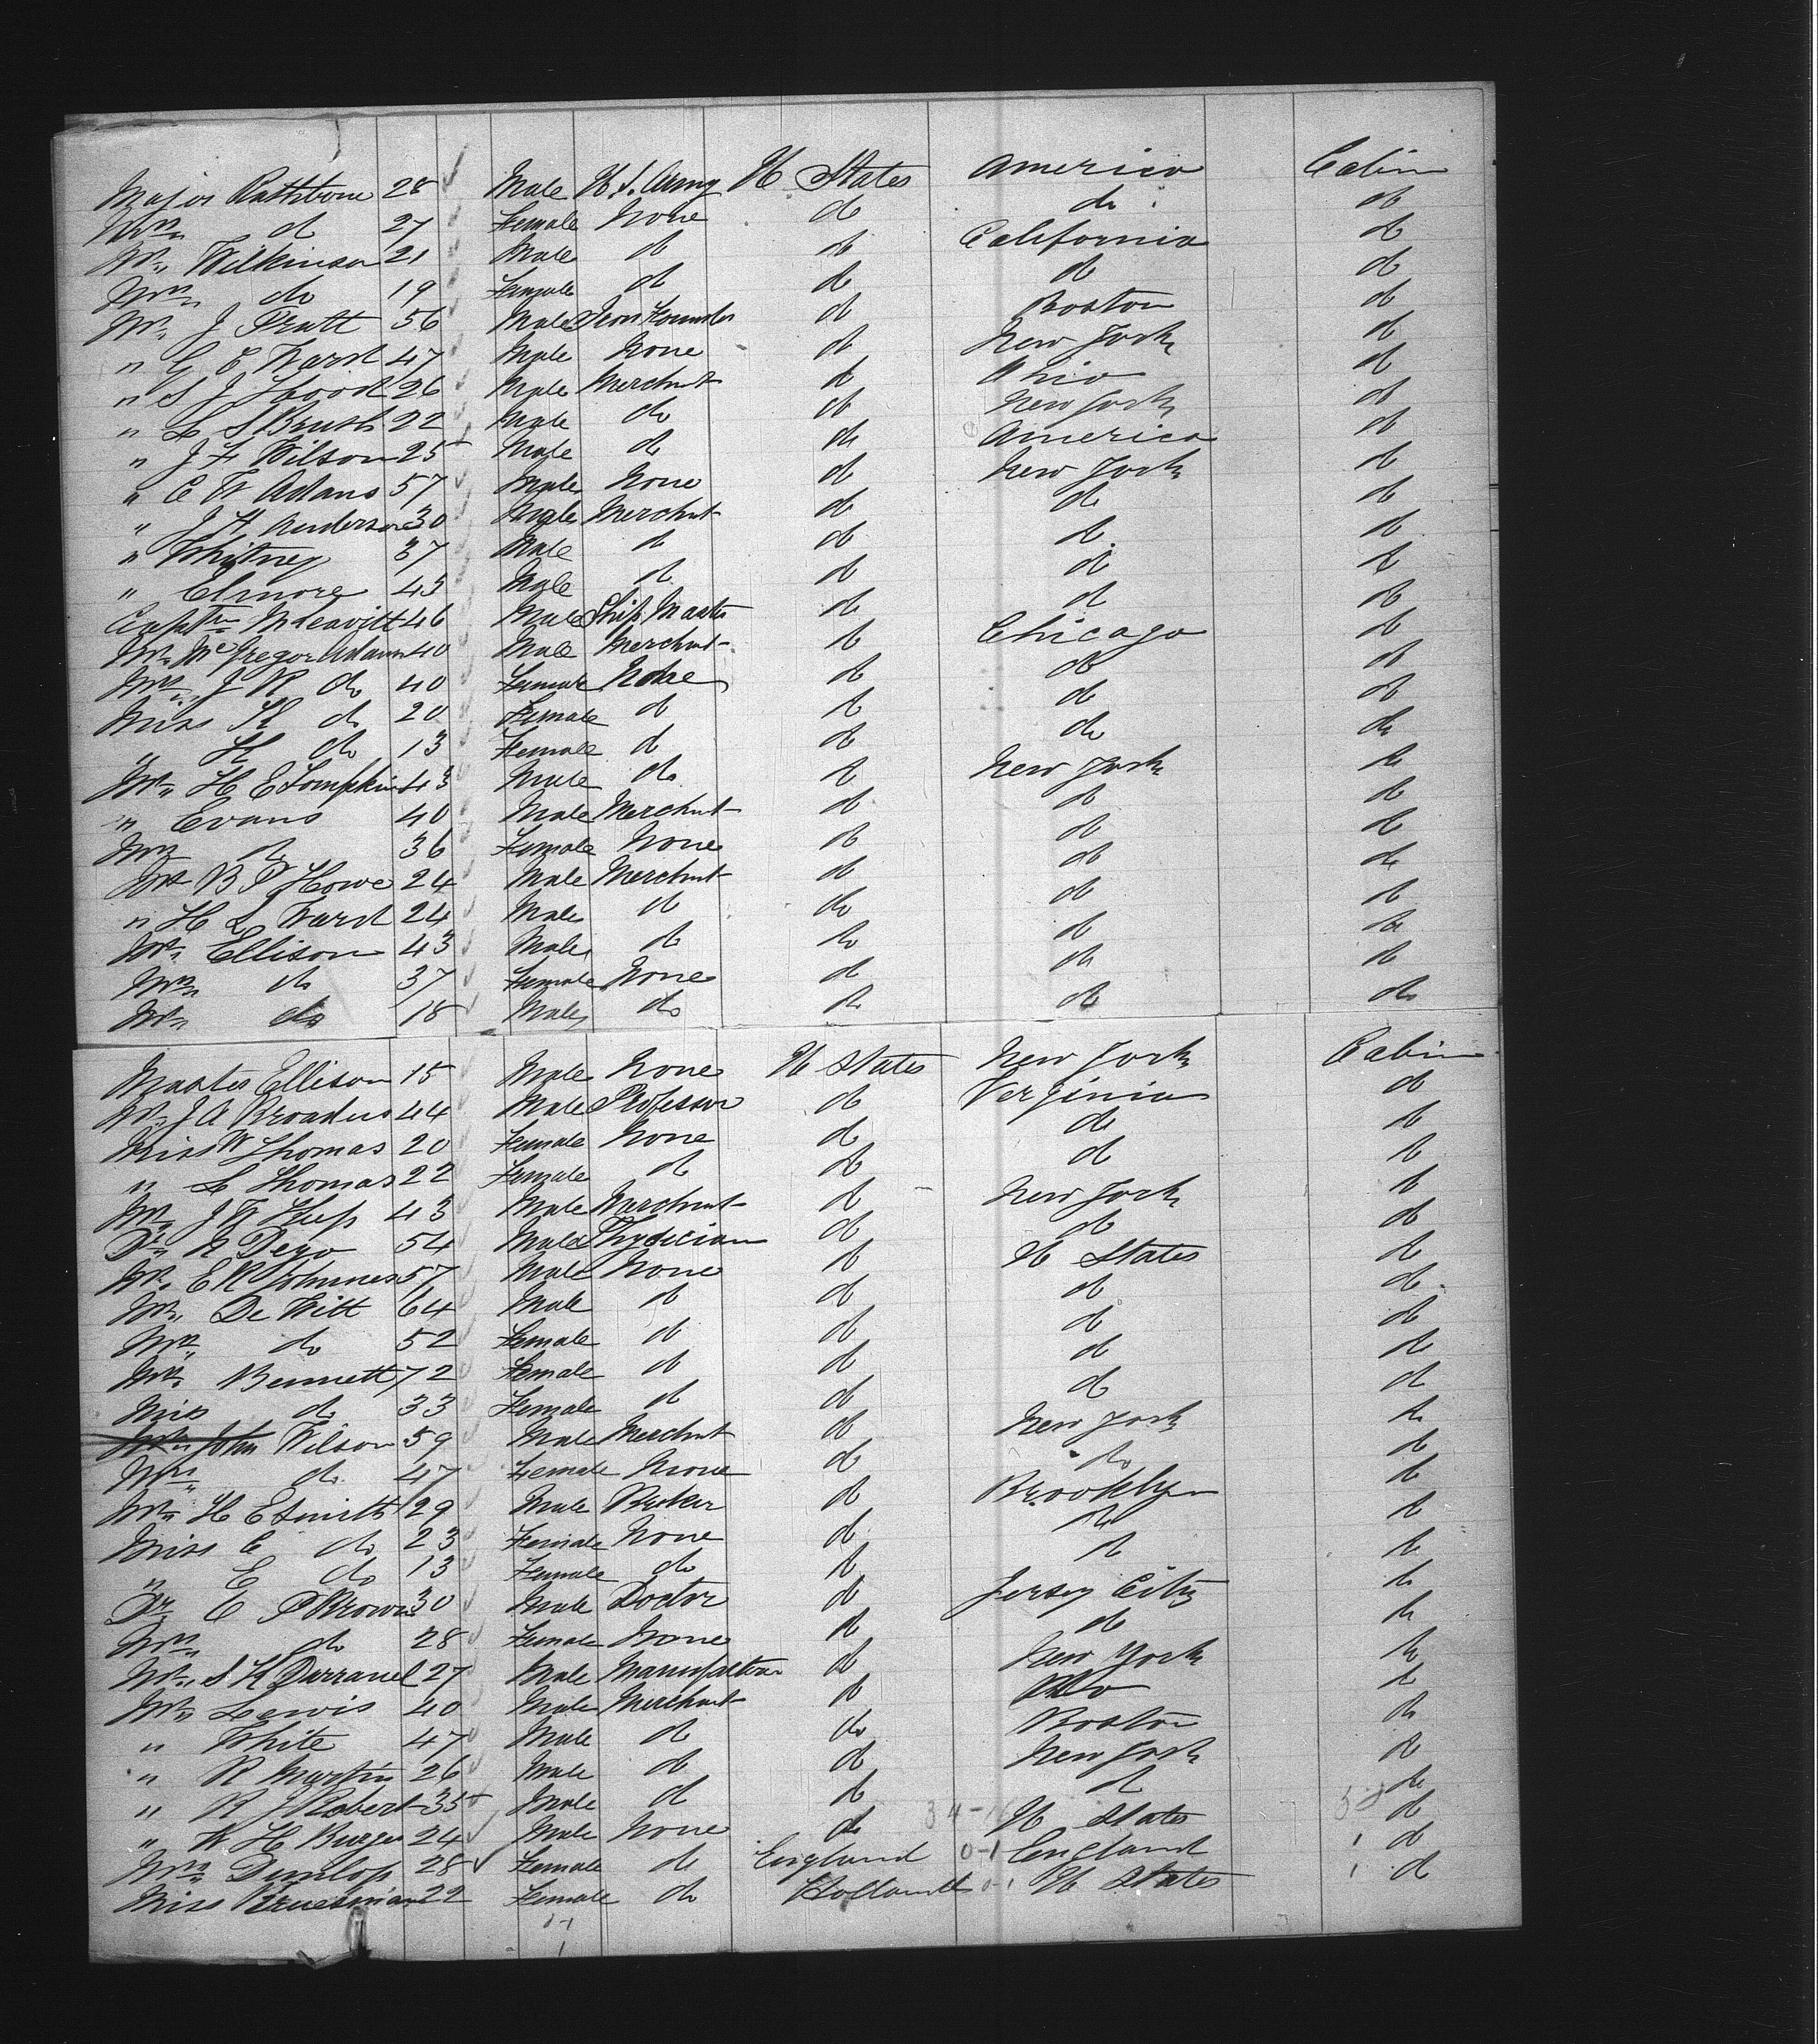 Major Rathbone 28 Male U.S. Army U States America Cabin
Mrs do 27 Female None do do do
Mr. Wilkinson 21 Male do do California do
Mrs do 19 Female do do do do
Mr. J Pratt 56 Male Iron Founder do Boston do
" G E Ward 47 Male None do New York do
" S J Hood 26 Male Merchnt do Ohio do
" L S Brush 22 Male do do New York do
" J F Wilson 25 Male do do America do
" C W Adams 57 Male None do New York do
" J H Anderson 30 Male Merchnt do do do
" Whitney 37 Male do do do do
" Elmore 43 Male do do do do
Captn McLeavitt 46 Male Ship Master do do do
Mr. McGregor Adams 40 Male Merchnt do Chicago do
Mrs J R do 40 Female None do do do
Miss K do 20 Female do do do do
" H do 13 Female do do do do
Mr. H E Tompkins 43 Male do do New York do
" Evans 40 Male Merchnt do do do
Mrs do 36 Female None do do do
Mr B P Howe 24 Male Merchnt do do do
" H L Ward 24 Male do do do do
Mr. Ellison 43 Male do do do do
Mrs do 37 Female None do do do
Mr. do 18 Male do do do do
Master Ellison 15 Male None U States New York Cabin
Mr. J A Broadus 44 Male Professor do Virginia do
Miss W Thomas 20 Female None do do do
" L Thomas 22 Female do do do do
Mr. J W 43 Male Merchnt do New York do
Dr. A Deyo 54 Male Physician do do do
Mr. E R 57 Male None do U States do
Mr. De Witt 64 Male do do do do
Mrs do 52 Female do do do do
Mrs. Bennett 72 Female do do do do
Miss do 33 Female do do do do
Mr. John Wilson 59 Male Merchnt do New York do
Mrs do 47 Female None do do do
Mr. H E Smith 29 Male Broker do Brooklyn do
Miss C do 23 Female None do do do
" E do 13 Female do do do do
Dr. E P Brown 30 Male Doctor do Jersey City do
Mrs do 28 Female None do do do
Mr. S K 27 Male Manufacturer do New York do
Mr. Lewis 40 Male Merchnt do do do
" White 47 Male do do Boston do
" R Martin 26 Male do do New York do
" R J Robert 35 Male do do do do
" W H Burger 24 Male None do 34- U States 58 do
Mrs Dunlop 28 Female do England 0-1 England 1 do
Miss 22 Female do Holland 0-1 U States 1 do